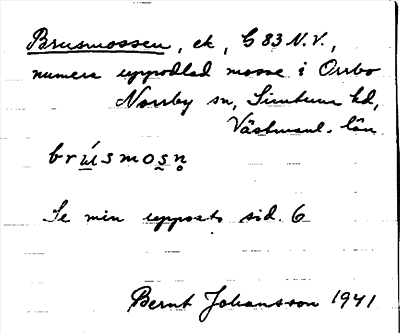 Brusmossen, ek, G 83 N.V.,
numera uppodlad mosse i Orrbo
Norrby sn, Simtuna hd,
Västmanl. län.
brúsmosn̥
Se min uppsats sid. 6
Bernt Johansson 1941